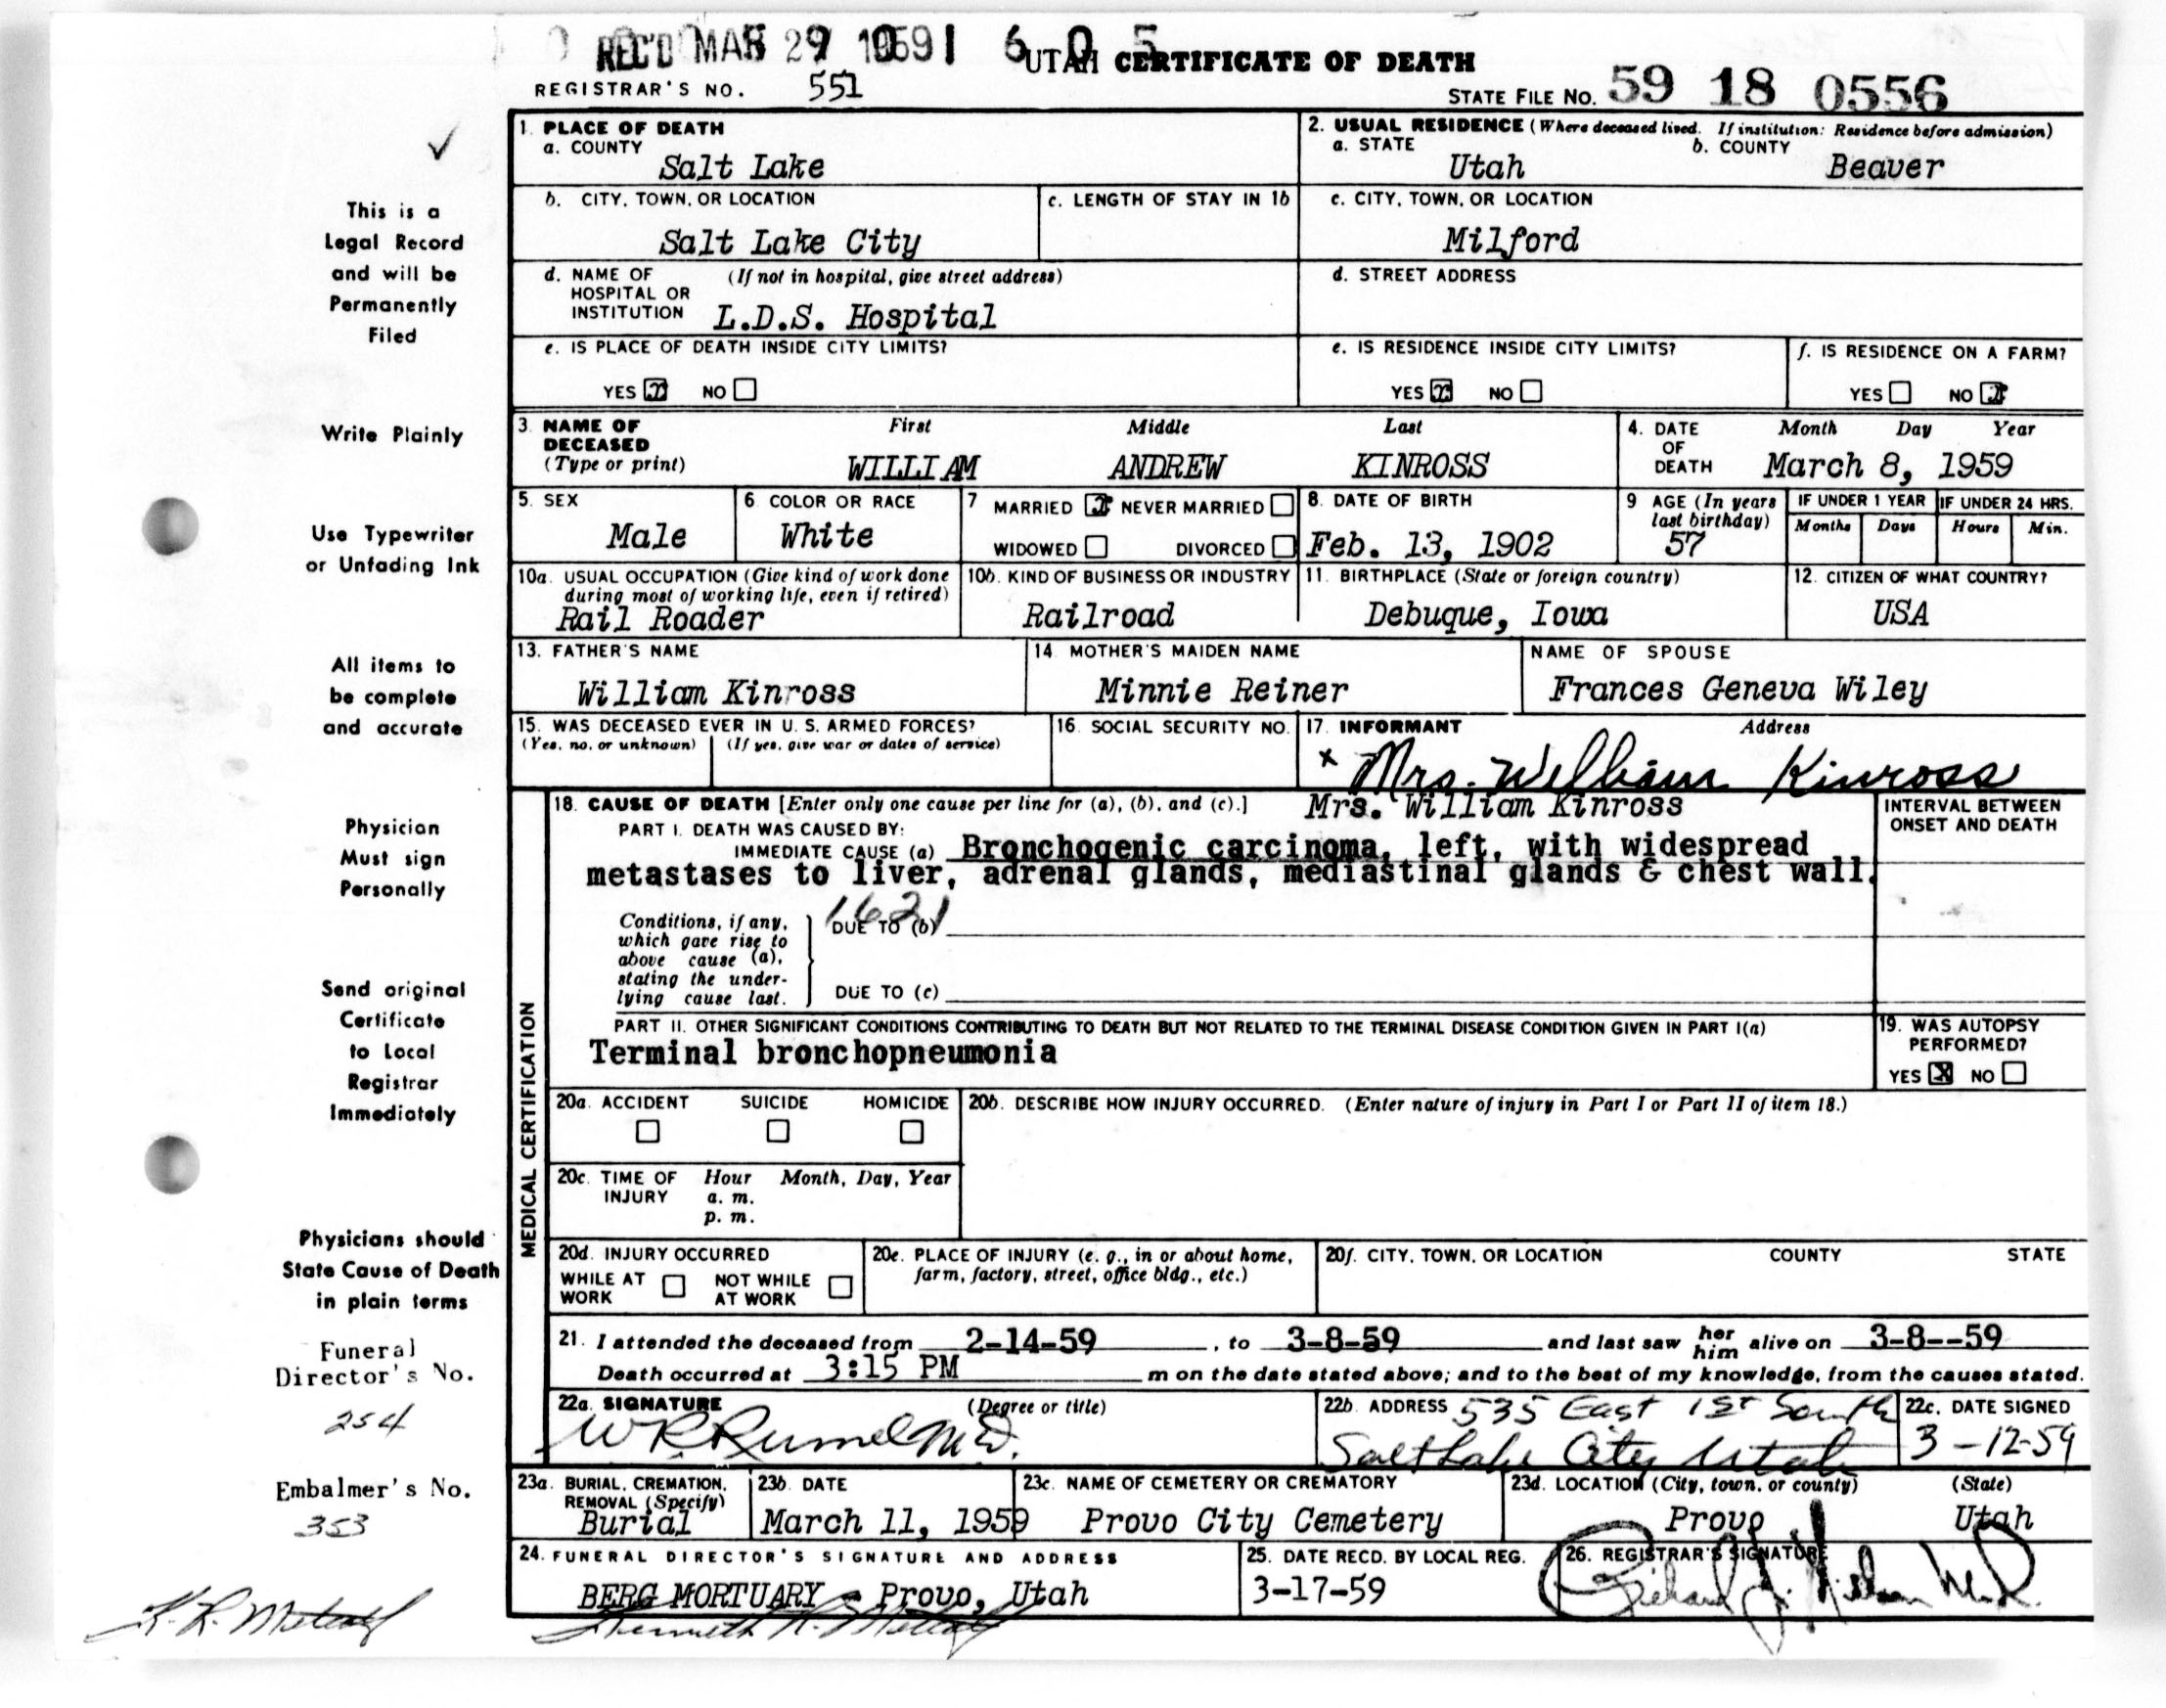 REC'D MAR 29 1959 1 6 0 5
UTAH CERTIFICATE OF DEATH
REGISTRAR'S NO. 551
STATE FILE NO. 59 18 0556
This is a
Legal Record
and will be
Permanently
Filed
Write Plainly
Use Typewriter
or Unfading Ink
All items to
be complete
and accurate
Physician
Must sign
Personally
Send original
Certificate
to Local
Registrar
Immediately
Physicians should
State Cause of Death
in plain terms
Funeral
Director's No.
254
Embalmer's No.
353
K. R. Metcalf
1. PLACE OF DEATH
a. COUNTY
Salt Lake
2. USUAL RESIDENCE (Where deceased lived. If institution: Residence before admission)
a. STATE b. COUNTY
Utah Beaver
b. CITY, TOWN, OR LOCATION
Salt Lake City
c. LENGTH OF STAY IN 1b
c. CITY, TOWN, OR LOCATION
Milford
d. NAME OF (If not in hospital, give street address)
HOSPITAL OR
INSTITUTION L.D.S. Hospital
d. STREET ADDRESS
e. IS PLACE OF DEATH INSIDE CITY LIMITS?
YES x NO
e. IS RESIDENCE INSIDE CITY LIMITS?
YES x NO
f. IS RESIDENCE ON A FARM?
YES NO x
3. NAME OF First Middle Last
DECEASED
(Type or print) WILLIAM ANDREW KINROSS
4. DATE Month Day Year
OF
DEATH March 8, 1959
5. SEX
Male
6. COLOR OR RACE
White
7 MARRIED x NEVER MARRIED
WIDOWED DIVORCED
8. DATE OF BIRTH
Feb. 13, 1902
9 AGE (In years
last birthday)
57
IF UNDER 1 YEAR IF UNDER 24 HRS.
Months Days Hours Min.
10a. USUAL OCCUPATION (Give kind of work done
during most of working life, even if retired)
Rail Roader
10b. KIND OF BUSINESS OR INDUSTRY
Railroad
11. BIRTHPLACE (State or foreign country)
Debuque, Iowa
12. CITIZEN OF WHAT COUNTRY?
USA
13. FATHER'S NAME
William Kinross
14. MOTHER'S MAIDEN NAME
Minnie Reiner
NAME OF SPOUSE
Frances Geneva Wiley
15. WAS DECEASED EVER IN U. S. ARMED FORCES?
(Yes, no, or unknown) (If yes, give war or dates of service)
16. SOCIAL SECURITY NO.
17. INFORMANT Address
x Mrs. William Kinross
Mrs. William Kinross
MEDICAL CERTIFICATION
18. CAUSE OF DEATH [Enter only one cause per line for (a), (b), and (c).]
INTERVAL BETWEEN
ONSET AND DEATH
PART I. DEATH WAS CAUSED BY:
IMMEDIATE CAUSE (a) Bronchogenic carcinoma, left, with widespread
metastases to liver, adrenal glands, mediastinal glands & chest wall.
1621
Conditions, if any,
which gave rise to
above cause (a),
stating the under-
lying cause last.
DUE TO (b)
DUE TO (c)
PART II. OTHER SIGNIFICANT CONDITIONS CONTRIBUTING TO DEATH BUT NOT RELATED TO THE TERMINAL DISEASE CONDITION GIVEN IN PART I(a)
Terminal bronchopneumonia
19. WAS AUTOPSY
PERFORMED?
YES X NO
20a. ACCIDENT SUICIDE HOMICIDE
20b. DESCRIBE HOW INJURY OCCURRED. (Enter nature of injury in Part I or Part II of item 18.)
20c. TIME OF Hour Month, Day, Year
INJURY a. m.
p. m.
20d. INJURY OCCURRED
WHILE AT NOT WHILE
WORK AT WORK
20e. PLACE OF INJURY (e. g., in or about home,
farm, factory, street, office bldg., etc.)
20f. CITY, TOWN, OR LOCATION COUNTY STATE
21. I attended the deceased from 2-14-59, to 3-8-59 and last saw her him alive on 3-8--59
Death occurred at 3:15 PM m on the date stated above; and to the best of my knowledge, from the causes stated.
22a. SIGNATURE (Degree or title)
W R Rumel M.D.
22b. ADDRESS 535 East 1st South
Salt Lake City Utah
22c. DATE SIGNED
3-12-59
23a. BURIAL, CREMATION,
REMOVAL (Specify)
Burial
23b. DATE
March 11, 1959
23c. NAME OF CEMETERY OR CREMATORY
Provo City Cemetery
23d. LOCATION (City, town, or county) (State)
Provo Utah
24. FUNERAL DIRECTOR'S SIGNATURE AND ADDRESS
BERG MORTUARY - Provo, Utah
Kenneth R. Metcalf
25. DATE RECD. BY LOCAL REG.
3-17-59
26. REGISTRAR'S SIGNATURE
Richard J. Nelson M.D.